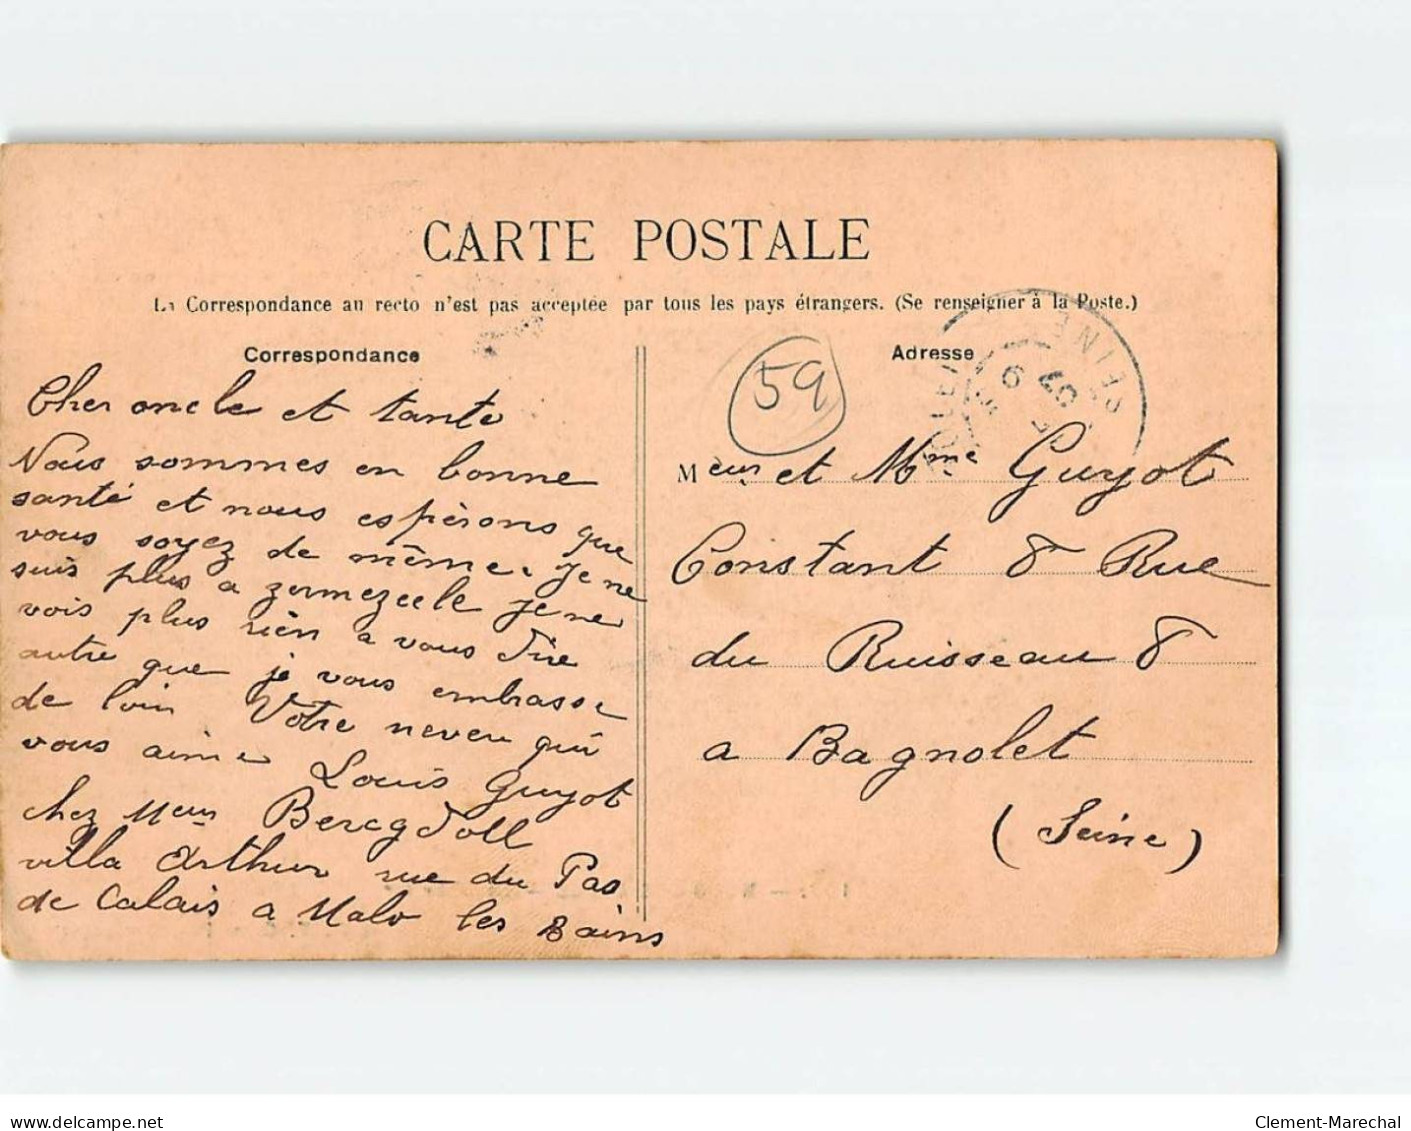 CARTE POSTALE
La Correspondance au recto n'est pas acceptée par tous les pays étrangers. (Se renseigner à la Poste.)
Correspondance
Cher oncle et tante
Nous sommes en bonne
santé et nous espèrons que
vous soyez de même. Je ne
suis plus a zermezeele je ne
vois plus rien a vous dire
autre que je vous embrasse
de loin Votre neveu qui
vous aime Louis Guyot
chez Meur Bercgdoll
villa Arthur rue du Pas
de Calais a Malo les Bains
Adresse
59
SEINE
07
Meur et Mme Guyot
Constant 8 Rue
du Ruisseau 8
a Bagnolet
(Seine)
delcampe.net
Clement-Marechal